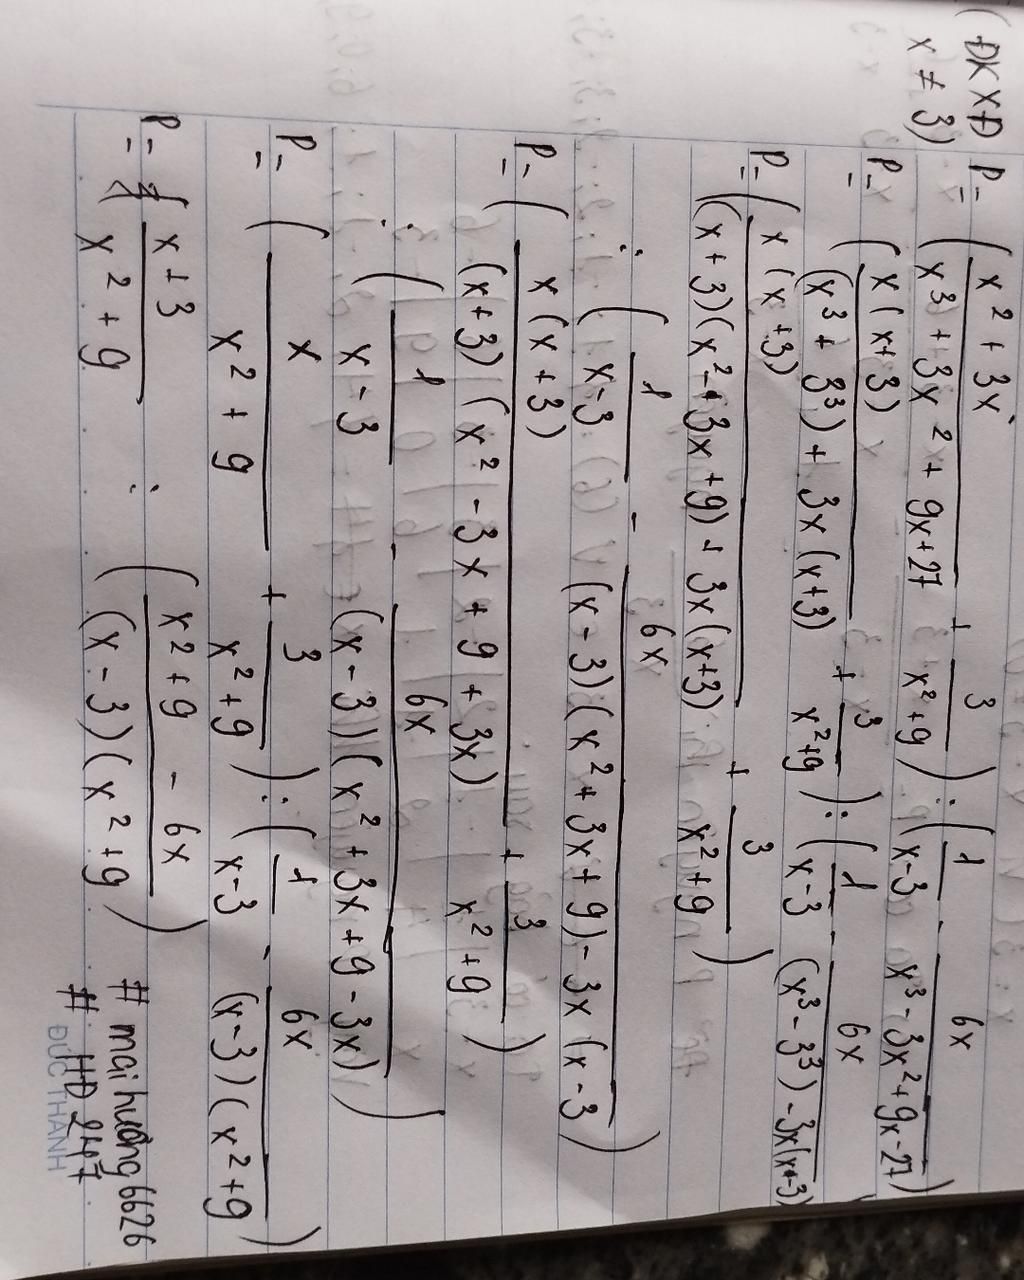 (ĐKXĐ
x ≠ 3)
P = (x² + 3x / x³ + 3x² + 9x + 27 + 3 / x² + 9) : (1 / x - 3 - 6x / x³ - 3x² + 9x - 27)
P = (x(x + 3) / (x³ + 3³) + 3x(x + 3) + 3 / x² + 9) : (1 / x - 3 - 6x / (x³ - 3³) - 3x(x - 3)
P = (x(x + 3) / (x + 3)(x² - 3x + 9) + 3x(x + 3) + 3 / x² + 9)
: (1 / x - 3 - 6x / (x - 3)(x² + 3x + 9) - 3x(x - 3)
P = (x(x + 3) / (x + 3)(x² - 3x + 9 + 3x) + 3 / x² + 9)
: (1 / x - 3 - 6x / (x - 3)(x² + 3x + 9 - 3x))
P = (x / x² + 9 + 3 / x² + 9) : (1 / x - 3 - 6x / (x - 3)(x² + 9))
P = (x + 3 / x² + 9 : (x² + 9 - 6x / (x - 3)(x² + 9))
# mai hường 6626
# HĐ 247
ĐỨC THÀNH